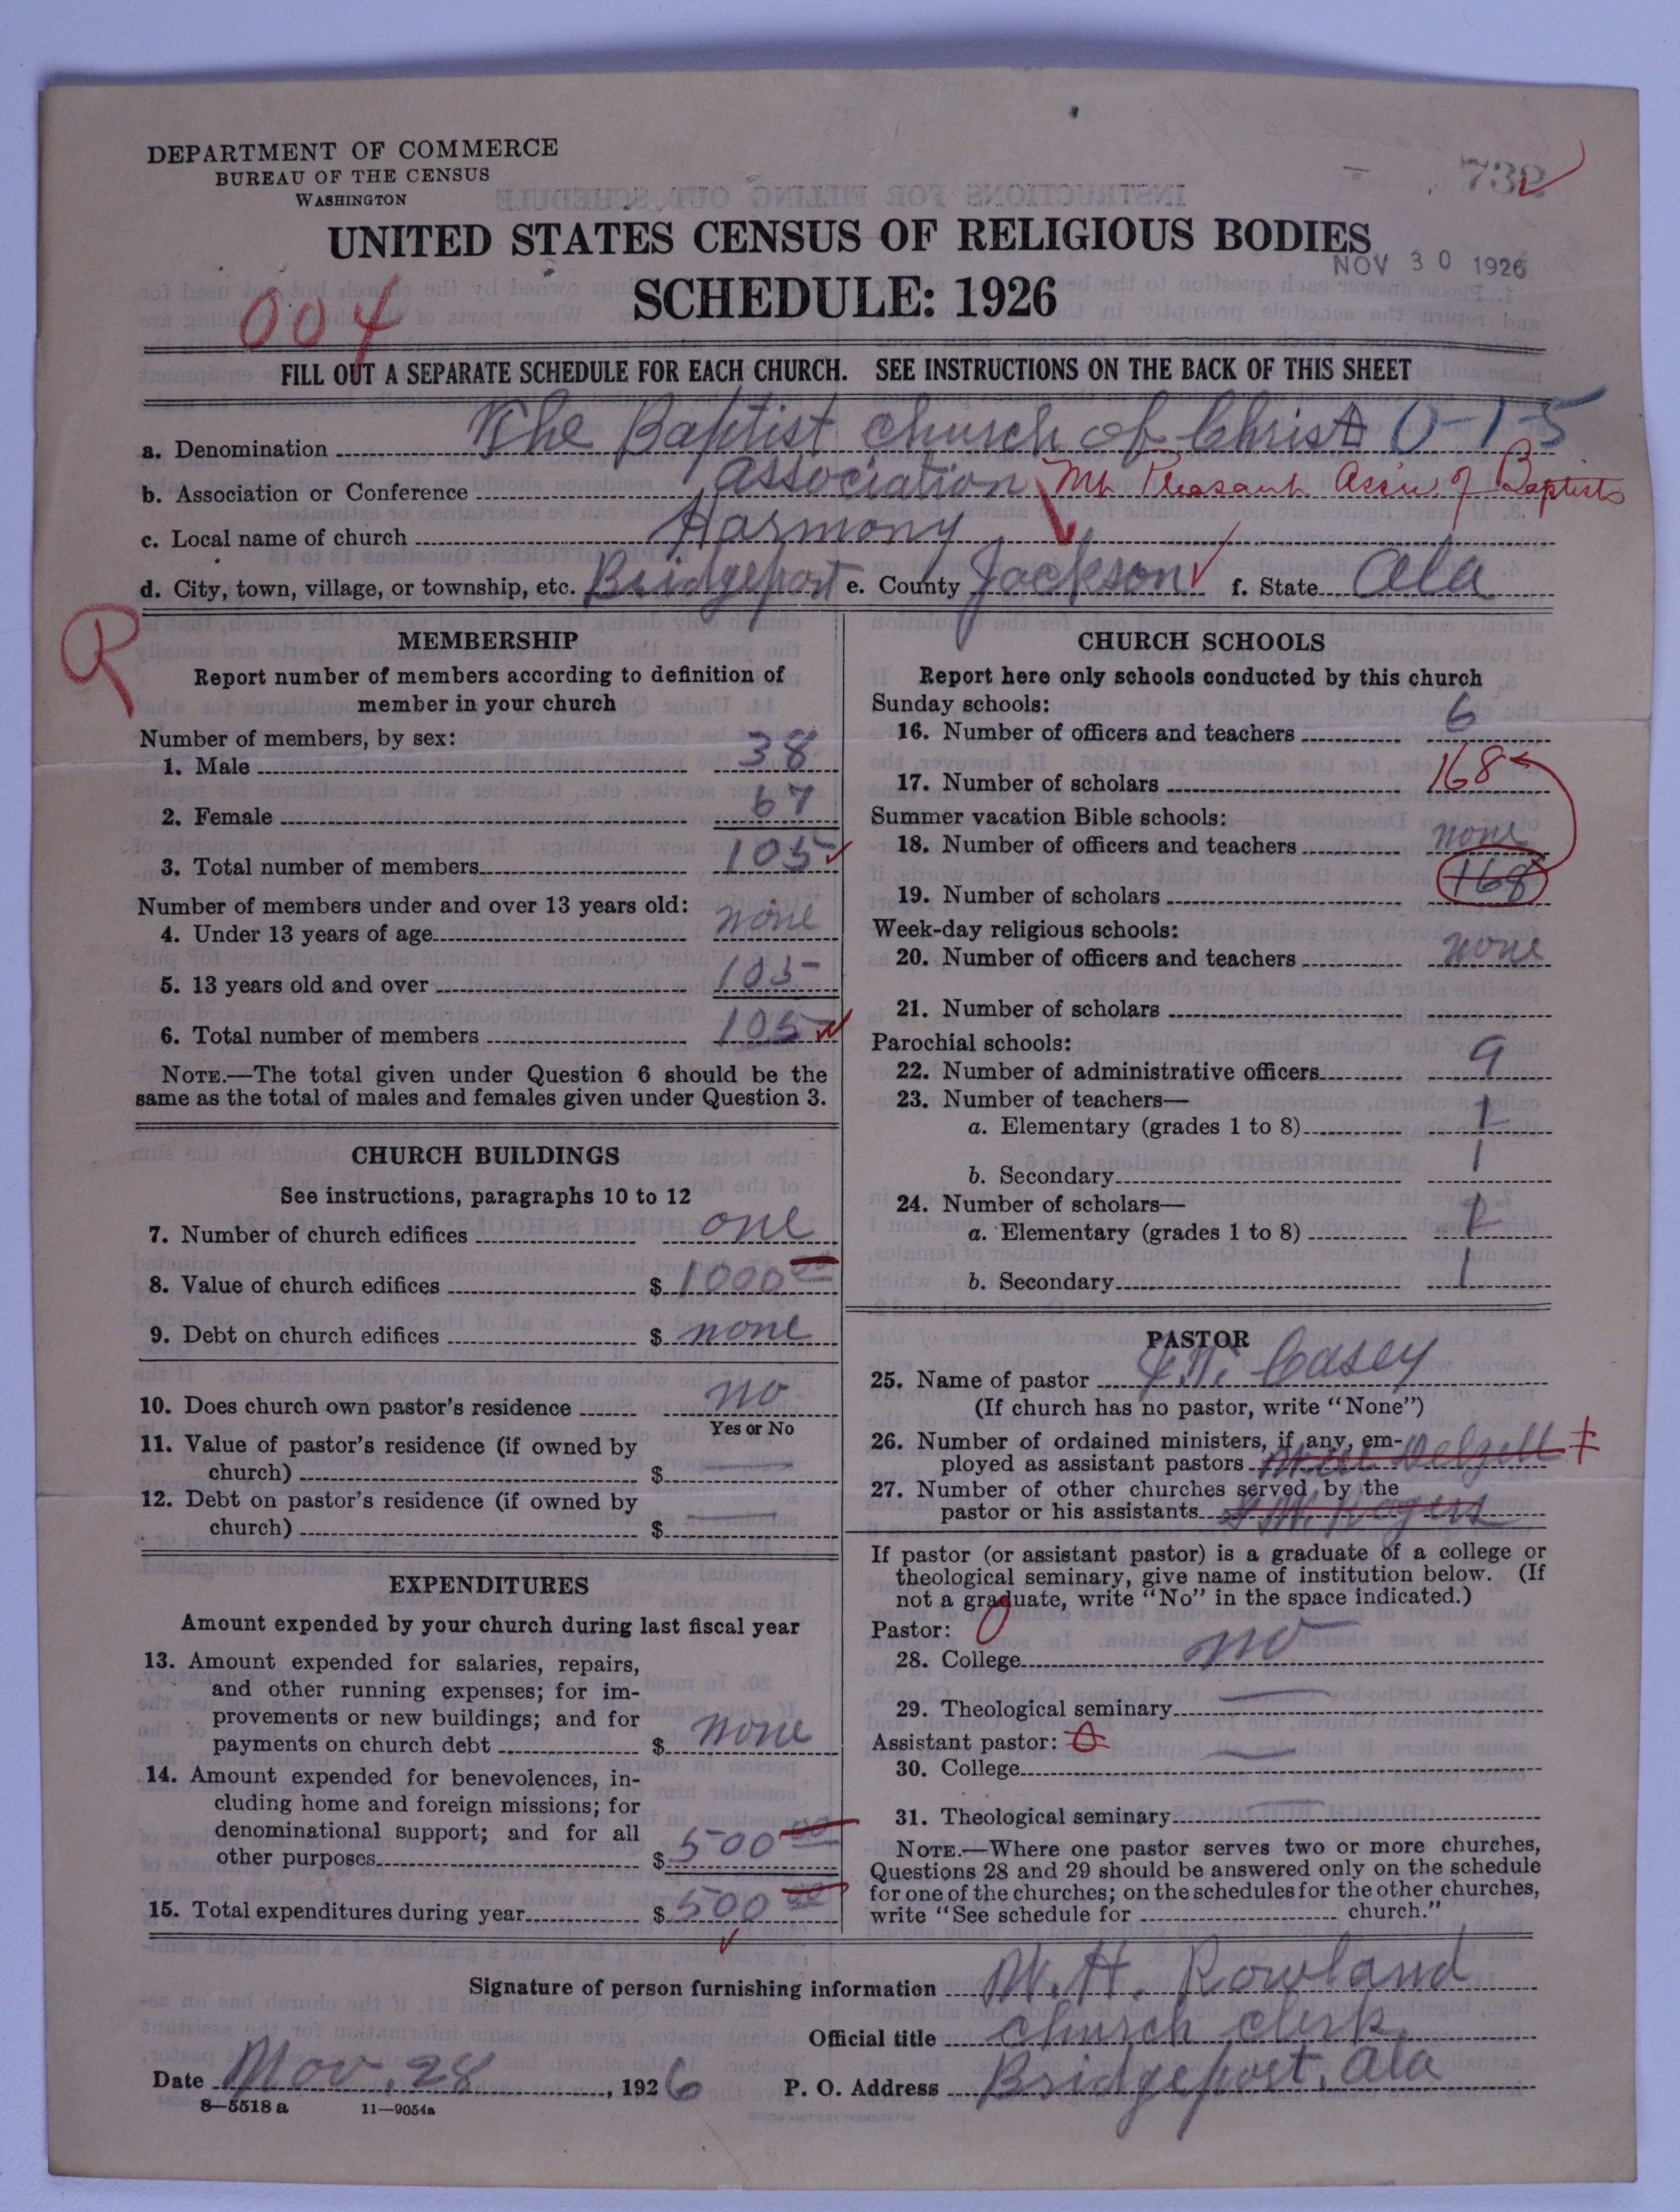 DEPARTMENT OF COMMERCE
BUREAU OF THE CENSUS
WASHINGTON
732
UNITED STATES CENSUS OF RELIGIOUS BODIES
NOV 30 1926
SCHEDULE: 1926
004
FILL OUT A SEPARATE SCHEDULE FOR EACH CHURCH. SEE INSTRUCTIONS ON THE BACK OF THIS SHEET
a. Denomination The Baptist church of Christ 0-15
b. Association or Conference Association Mt Pleasant Assn. of Baptists
c. Local name of church Harmony
d. City, town, village, or township, etc. Bridgeport e. County Jackson f. State Ala
R
MEMBERSHIP
Report number of members according to definition of
member in your church
Number of members, by sex:
1. Male 38
2. Female 67
3. Total number of members 105
Number of members under and over 13 years old:
4. Under 13 years of age none
5. 13 years old and over 105
6. Total number of members 105
NOTE.—The total given under Question 6 should be the
same as the total of males and females given under Question 3.
CHURCH BUILDINGS
See instructions, paragraphs 10 to 12
7. Number of church edifices one
8. Value of church edifices $ 1000 00
9. Debt on church edifices $ none
10. Does church own pastor's residence no
Yes or No
11. Value of pastor's residence (if owned by
church) $
12. Debt on pastor's residence (if owned by
church) $
EXPENDITURES
Amount expended by your church during last fiscal year
13. Amount expended for salaries, repairs,
and other running expenses; for im-
provements or new buildings; and for
payments on church debt $ none
14. Amount expended for benevolences, in-
cluding home and foreign missions; for
denominational support; and for all
other purposes $ 500 00
15. Total expenditures during year $ 500 00
CHURCH SCHOOLS
Report here only schools conducted by this church
Sunday schools:
16. Number of officers and teachers 6
17. Number of scholars 168
Summer vacation Bible schools:
18. Number of officers and teachers none
19. Number of scholars 168
Week-day religious schools:
20. Number of officers and teachers none
21. Number of scholars
Parochial schools:
22. Number of administrative officers 9
23. Number of teachers—
a. Elementary (grades 1 to 8) 1
b. Secondary 1
24. Number of scholars—
a. Elementary (grades 1 to 8) 1
b. Secondary 1
PASTOR
25. Name of pastor Casey
(If church has no pastor, write "None")
26. Number of ordained ministers, if any, em-
ployed as assistant pastors
27. Number of other churches served by the
pastor or his assistants Rogers
If pastor (or assistant pastor) is a graduate of a college or
theological seminary, give name of institution below. (If
not a graduate, write "No" in the space indicated.)
Pastor:
28. College no
29. Theological seminary
Assistant pastor:
30. College
31. Theological seminary
NOTE.—Where one pastor serves two or more churches,
Questions 28 and 29 should be answered only on the schedule
for one of the churches; on the schedules for the other churches,
write "See schedule for church."
Signature of person furnishing information W. H. Rowland
Official title church clerk
Date Nov. 28, 1926 P. O. Address Bridgeport, Ala
8—5518 a 11—9054a